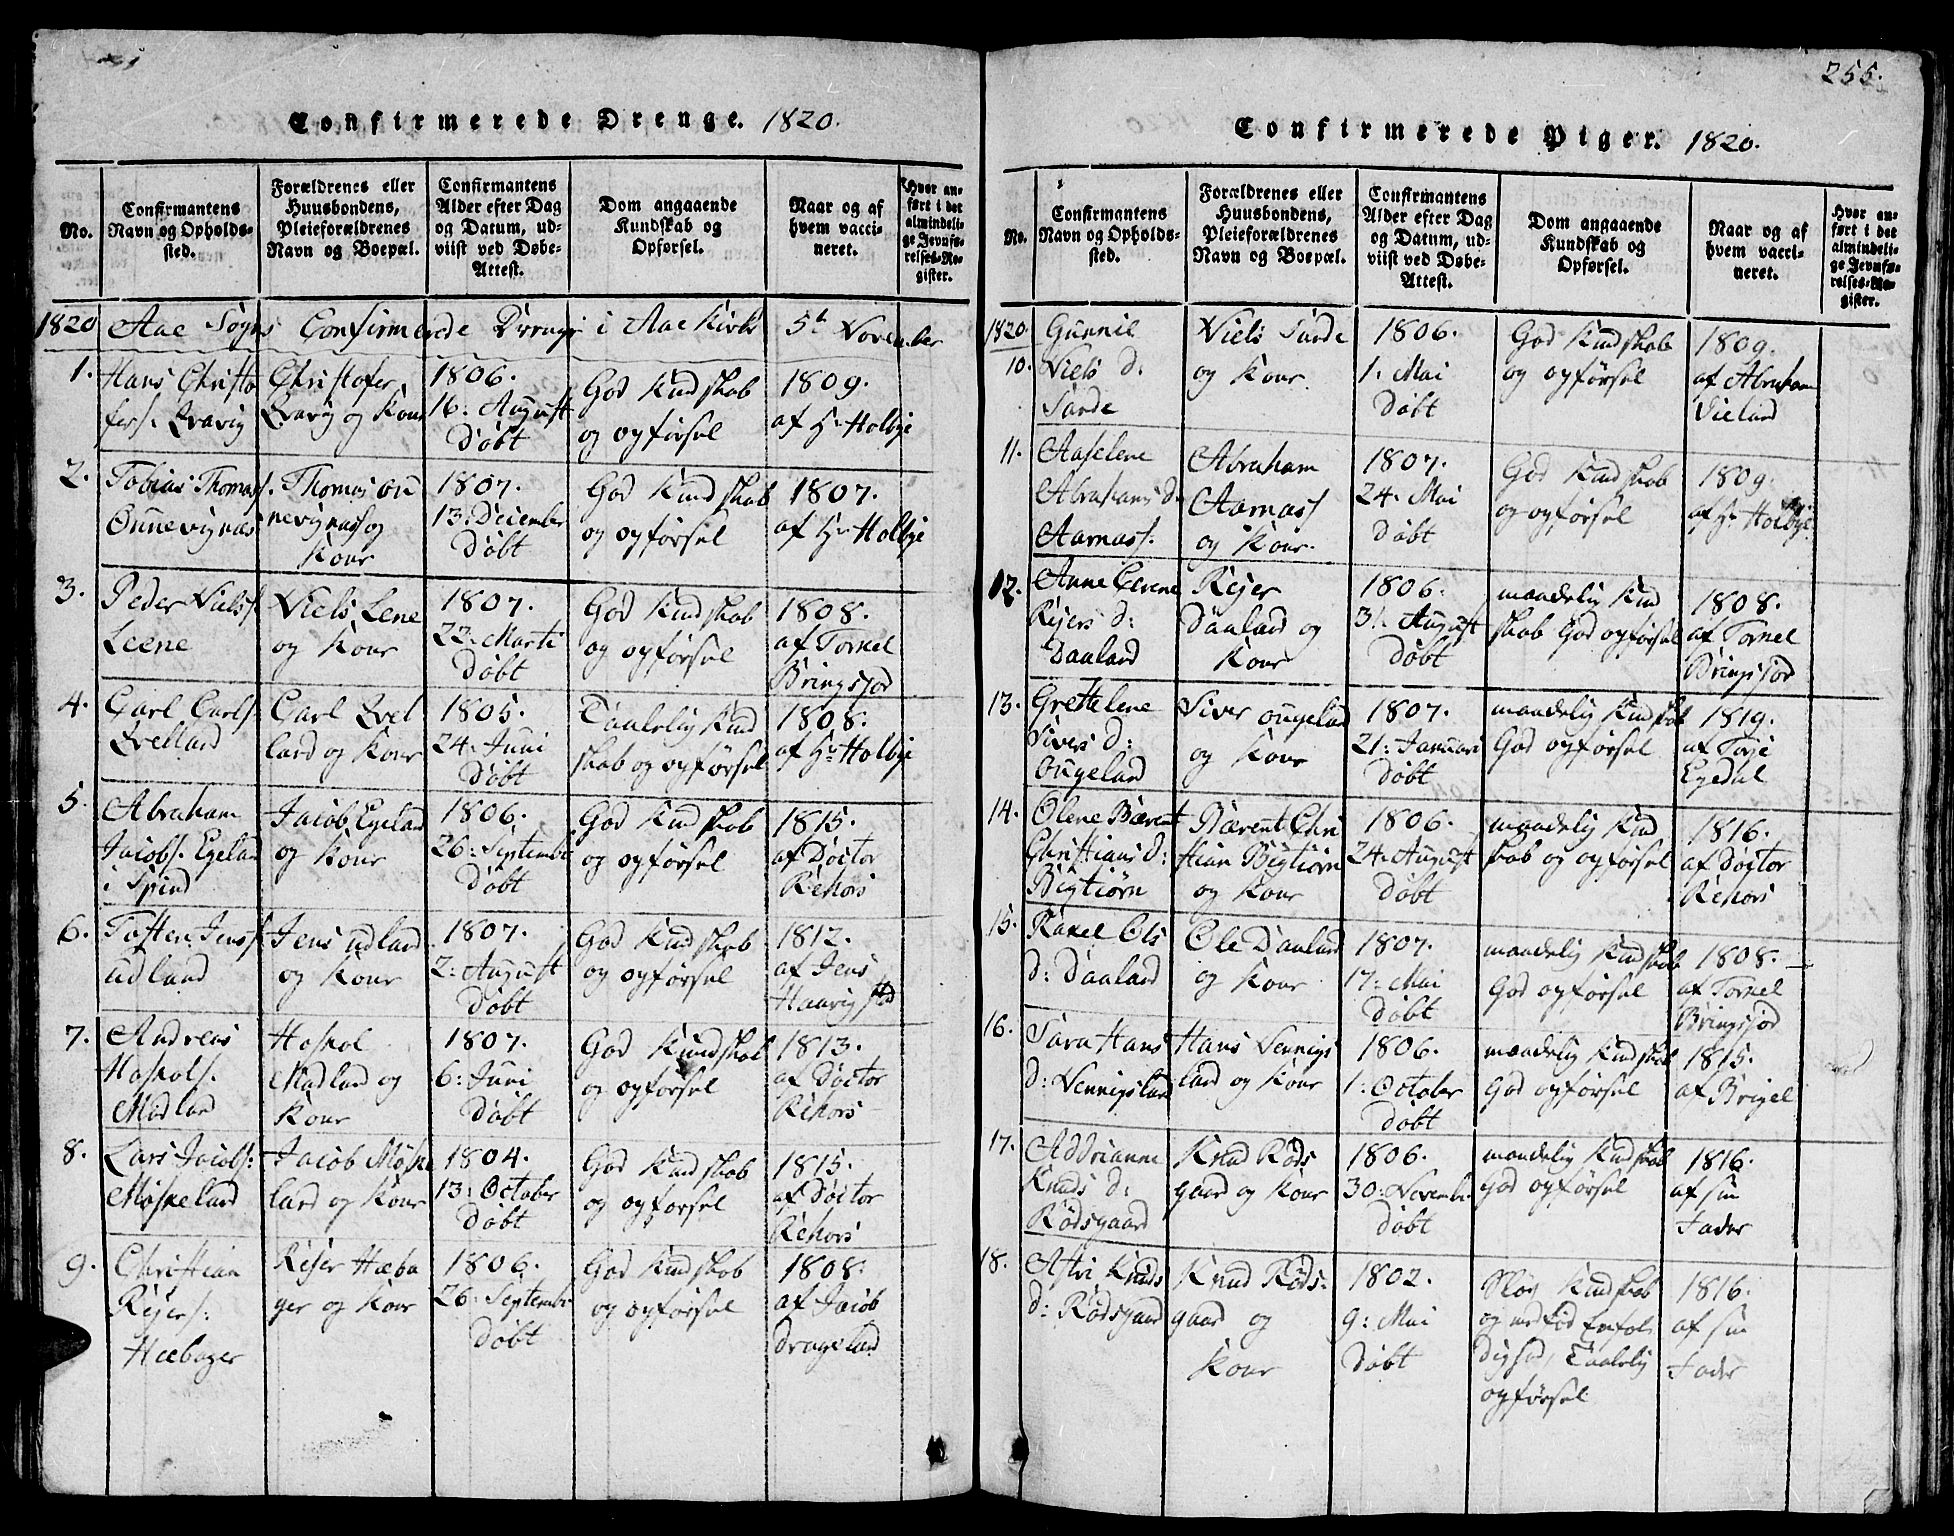 Confirmerede Drenge. 1820.
No.
Confirmantens
Navn og Opholds-
sted.
Forældrenes eller
Huusbondens,
Pleieforældrenes
Navn og Boepæl.
Confirmantens
Alder efter Dag
og Datum, ud-
viist ved Døbe-
Attest.
Dom angaaende
Kundskab og
Opførsel.
Naar og af
hvem vacci-
neret.
Hvor an-
ført i det
almindeli-
ge Jevnfø-
relses-Re-
gister.
1820 Aae Sogns Confirmerede Drenge i Aae Kirke 5t November
1.
Hans Christo
fers. Qvavig
Christofer
Qvavig og Kone
1806.
16. August
Døbt
God Kundskab
og opførsel
1809.
af Hr Holbye
2.
Tobias Thomass.
Ønnevignæs
Thomas Øn
nevignæs og
Kone
1807.
13. December
Døbt
God Kundskab
og opførsel
1807.
af Hr Holbye
3.
Peder Niels.
Leene
Niels Lene
og Kone
1807.
22. Marti
Døbt
God Kundskab
og opførsel
1808.
af Tornel
Bringsjor
4.
Carl Carls.
Qvelland
Carl Qvel
land og Kone
1805.
24. Juni
Døbt
Taalelig Kund
skab og opførsel
1808.
af Hr Holbye
5.
Abraham
Jacobs. Egeland
i Spind
Jacob Egeland
og Kone
1806.
26. September
Døbt
God Kundskab
og opførsel
1815.
af Doctor
Rehors
6.
Tosten Jenss.
Udland
Jens Udland
og Kone
1807.
2. August
Døbt
God Kundskab
og opførsel
1812.
af Jens
Haavigstad
7.
Andreas
Haskols.
Madland
Haskol
Madland og
Kone
1807.
6. Juni
Døbt
God Kundskab
og opførsel
1813.
af Doctor
Rehors
8.
Lars Jacobs:
Møskeland
Jacob Møske
land og Kone
1804.
13. October
Døbt
God Kundskab
og opførsel
1815.
af Doctor
Rehors
9.
Christian
Rejers:
Hæbager
Rejer Hæba
ger og Kone
1806.
26. September
Døbt
God Kundskab
og opførsel
1808:
af Jacob
Drageland
255.
Confirmerede Piger. 1820.
No.
Confirmantens
Navn og Opholds-
sted.
Forældrenes eller
Huusbondens,
Pleieforældrenes
Navn og Boepæl.
Confirmantens
Alder efter Dag
og Datum, ud-
viist ved Døbe-
Attest.
Dom angaaende
Kundskab og
Opførsel.
Naar og af
hvem vacci-
neret.
Hvor an-
ført i det
almindeli-
ge Jevnfø-
relses-Re-
gister.
1820.
10.
Gunnil
Niels d.
Sande
Niels Sande
og Kone
1806.
1. Mai
Døbt
God Kundskab
og opførsel
1809.
af Abraham
Vieland
11.
Aaselene
Abrahams d.
Aarnass.
Abraham
Aarnass
og Kone.
1807.
24. Mai
Døbt
God Kundskab
og opførsel
1809.
af Hr Holbye
12.
Anne Cerene
Rejers d:
Daaland
Rejer
Daaland og
Kone
1806.
31. August
Døbt
maadelig Kund
skab God opførsel
1808.
af Tornel
Bringsjor
13.
Grethelene
Sivers d:
Ougeland
Siver Ougeland
og Kone
1807.
21. Januari
Døbt
maadelig Kundskab
God opførsel
1819.
af Terje
Egedal
14.
Olene Bærent
Christians d:
Bigtiörn
Bærent Chri
stian Bigtiörn
og Kone
1806.
24. August
Døbt
maadelig Kund
skab og opførsel
1816.
af Doctor
Rehors
15.
Rakel Ols
d: Daaland
Ole Daaland
og Kone
1807.
17. Mai
Døbt
maadelig Kundskab
God opførsel
1808.
af Tornel
Bringsjor
16.
Sara Hans
d: Vennigsland
Hans Vennigs
land og Kone
1806.
1. October
Døbt
maadelig Kundskab
God opførsel
1815.
af Brigel
17.
Addrianne
Knuds d:
Rødsgaard
Knud Røds
gaard og Kone
1806.
30. November
Døbt
maadelig Kundskab
god opførsel
1816.
af sin
Fader
18.
Astri Knuds
d: Rødsgaard
Knud Røds:
gaard og
Kone
1802.
9: Mai
Døbt
Sløj Kundskab
og medfød Enfol
dighed, Taalelig
opførsel
1816.
af sin
Fader